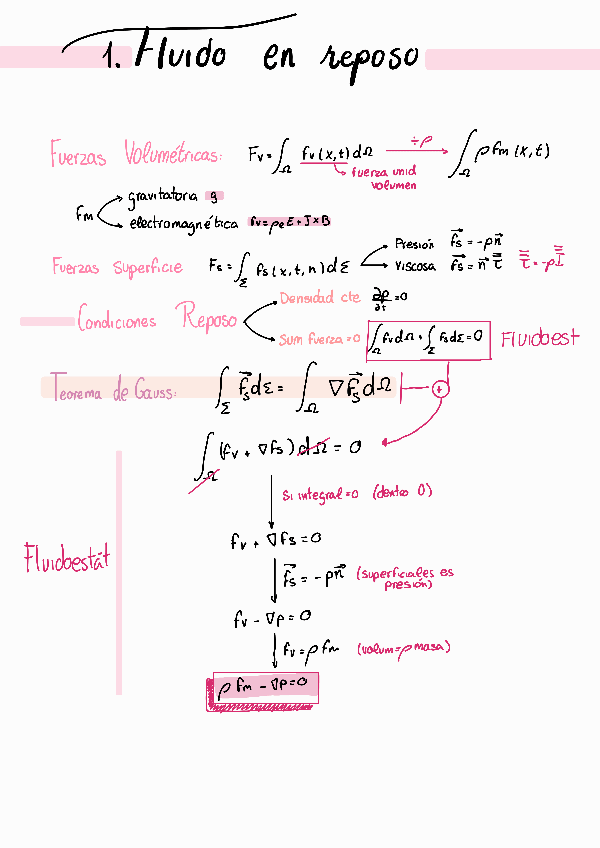 1. Fluido en reposo
Fuerzas Volumétricas: Fv = ∫_Ω fv(x,t) dΩ ÷ρ → ∫_Ω ρ fm(x,t)
fuerza unid
volumen
fm → gravitatoria g
→ electromagnética fv = ρe E + J × B
Fuerzas Superficie Fs = ∫_Σ fs(x,t,n) dΣ → Presión f⃗s = -pn⃗
→ Viscosa f⃗s = n⃗ τ̿ τ̿ = -p I̿
Condiciones Reposo → Densidad cte ∂ρ/∂t = 0
→ Sum fuerza = 0 ∫_Ω fv dΩ + ∫_Σ fs dΣ = 0 Fluidoest
Teorema de Gauss: ∫_Σ f⃗s dΣ = ∫_Ω ∇f⃗s dΩ +
∫_Ω (fv + ∇fs) dΩ = 0
Si integral = 0 (dentro 0)
Fluidoestát
fv + ∇fs = 0
f⃗s = -pn⃗ (superficiales es
presión)
fv - ∇p = 0
fv = ρ fm (volum = ρ masa)
ρ fm - ∇p = 0